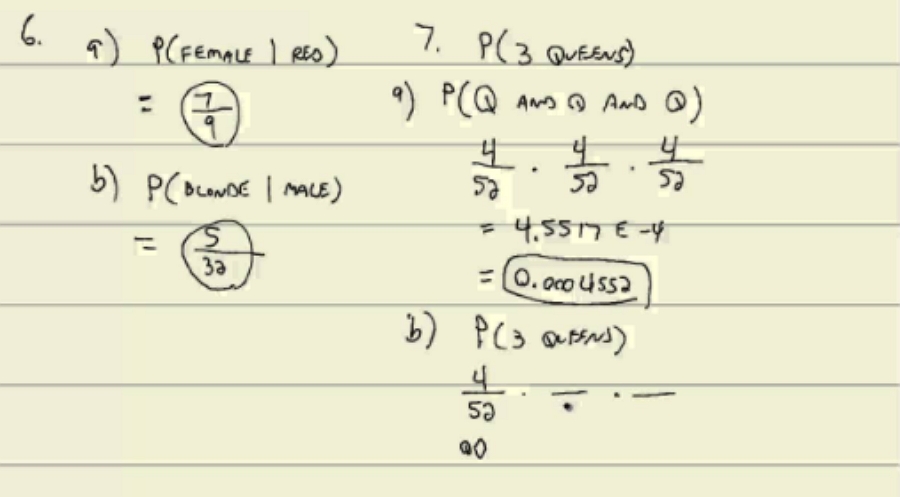 6.
a) P(FEMALE | RED)
= 7/9
b) P(BLONDE | MALE)
= 5/32
7. P(3 QUEENS)
a) P(Q AND Q AND Q)
4/52 · 4/52 · 4/52
= 4.5517 E-4
= 0.0004552
b) P(3 QUEENS)
4/52 · — · —